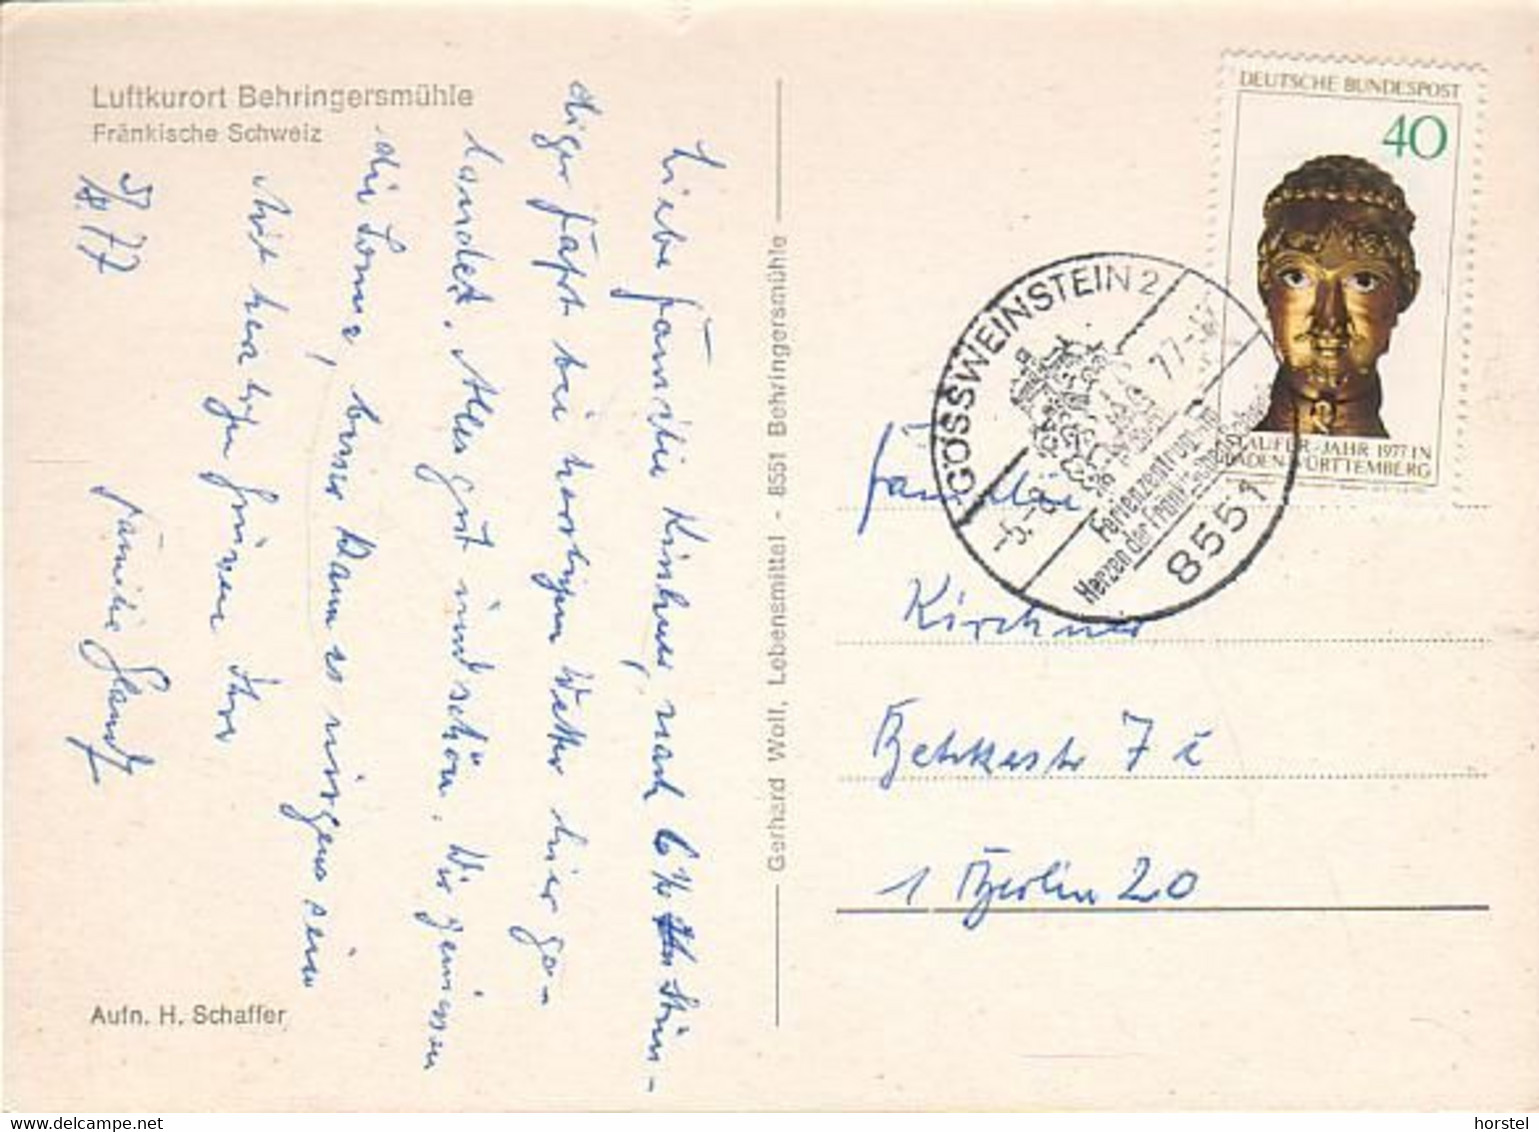 Luftkurort Behringersmühle
Fränkische Schweiz
Liebe Familie Kirchner, nach 6 1/2 Stün-
diger Fahrt bei herrlichem Wetter hier ge-
landet. Alles gut und schön. Wir genießen
die Sonne, besser kann es nirgens sein
Mit herzlichen Grüßen Ihre
Familie
5/8. 77
Aufn. H. Schaffer
Gerhard Woll, Lebensmittel - 8551 Behringersmühle
DEUTSCHE BUNDESPOST
40
STAUFER-JAHR 1977 IN
BADEN-WÜRTTEMBERG
GÖSSWEINSTEIN 2
-5.-8. 77-
Ferienzentrum im
Herzen der Fränkischen Schweiz
8551
Familie
Kirchner
7
1 Berlin 20
horstel